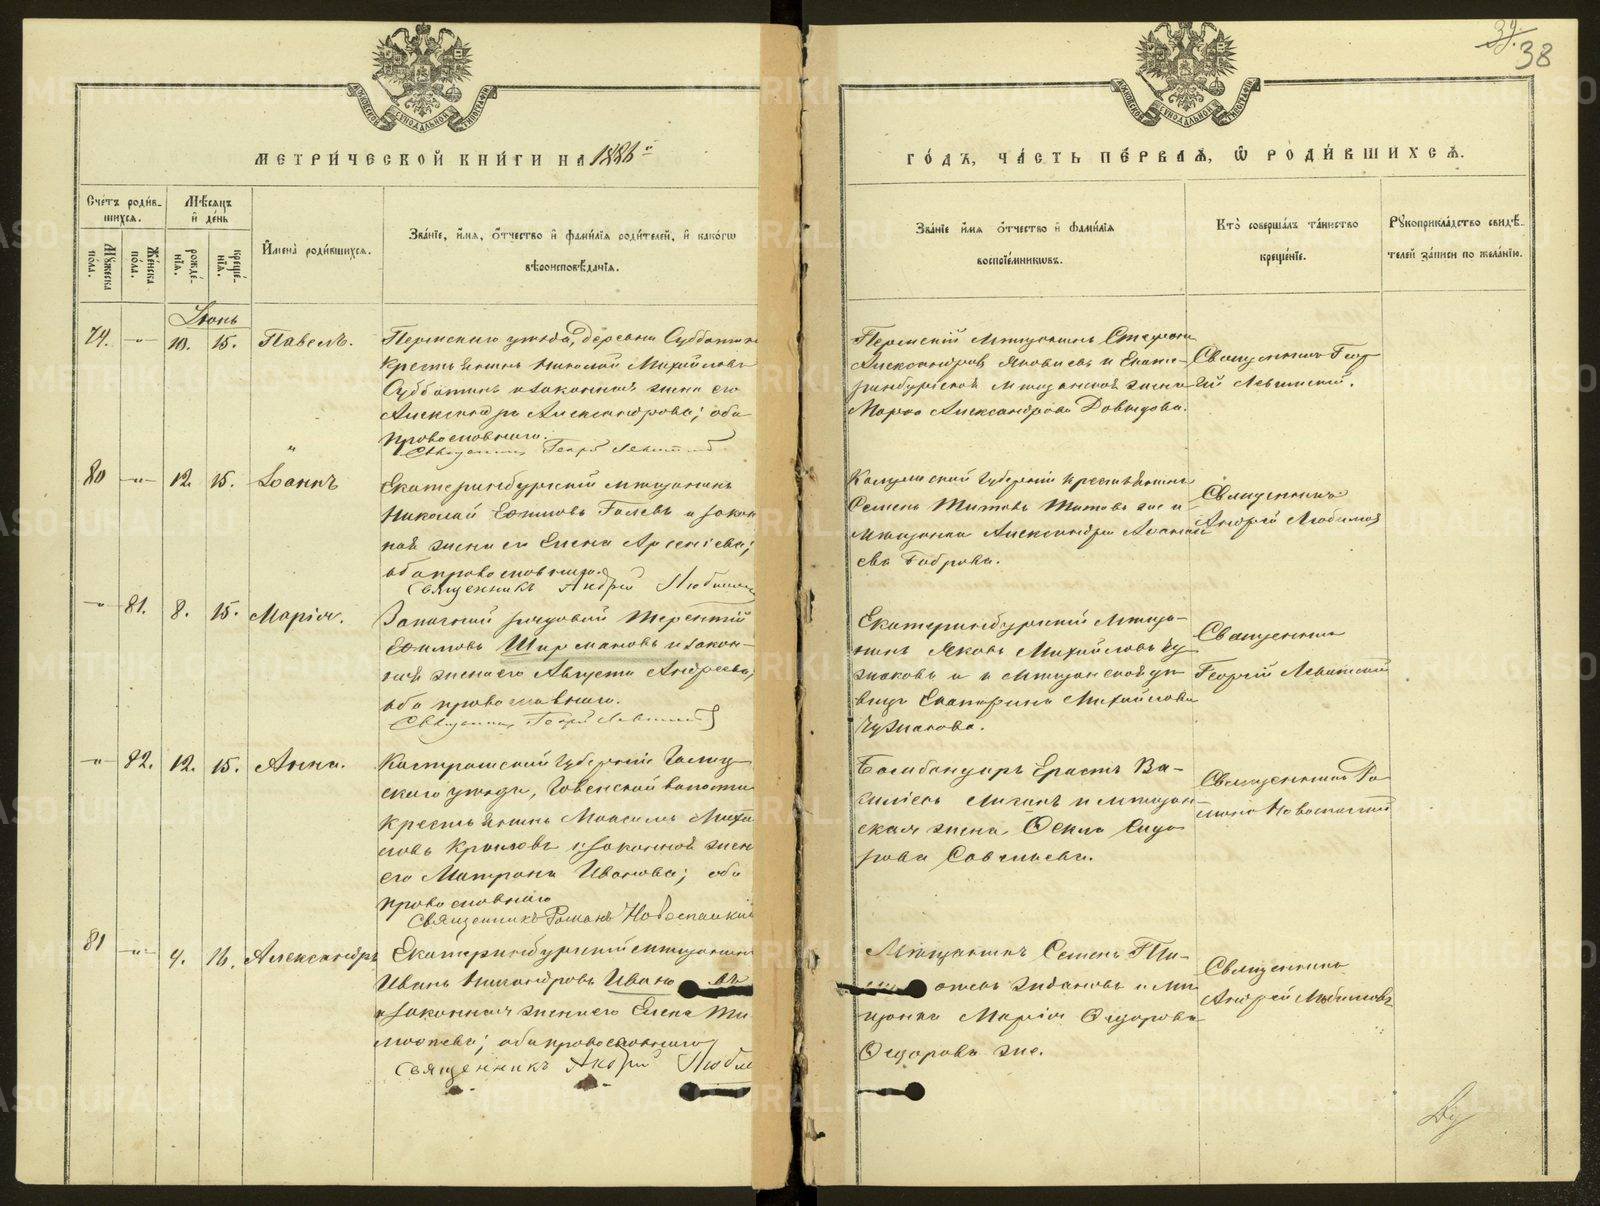 34.
38
МОСКОВСКОЙ СУНОДАЛЬНОЙ ТИПОГРАФІИ
МОСКОВСКОЙ СУНОДАЛЬНОЙ ТИПОГРАФІИ
МЕТРИ́ЧЕСКОЙ КНИ́ГИ НА 1886й
ГО́ДЪ, ЧА́СТЬ ПЕ́РВАѦ, Ѽ РОДИ́ВШИХСѦ.
Сче́тъ роди́в-
шихсѧ.
Мѣ́сѧцъ
и҆ де́нь
Му́жеска
по́ла.
Же́нска
по́ла.
рожде́-
нїѧ.
креще́-
нїѧ.
И҆мена̀ роди́вшихсѧ.
Зва́нїе, и҆́мѧ, ѻ҆́тчество и҆ фами́лїѧ роди́телей, и҆ како́гѡ
вѣроисповѣ́данїѧ.
Зва́нїе и҆́мѧ ѻ҆́тчество и҆ фами́лїѧ
воспрїе́мникѡвъ.
Кто̀ соверша́лъ та́инство
креще́нїѧ.
Рукоприкла́дство свидѣ́-
телей за́писи по жела́нїю.
Іюнь
74. -„- 10. 15. Павелъ.
Пермскаго уѣзда, Деревни Субботин
Крестьянинъ Николай Михайловъ
Субботинъ и законная жена его
Александра Александрова; оба
православнаго.
Священникъ Георгій Левитскій
Пермскій мѣщанинъ Стефанъ
Александровъ Яковлевъ и Екате-
ринбургская мѣщанская жена
Марія Александрова Давыдова.
Священникъ Геор
гій Левитскій.
80 -„- 12. 15. Іоаннъ
Екатеринбургскій мѣщанинъ
Николай Ефимовъ Голевъ и закон
ная жена его Елена Арсеніева;
оба православнаго.
Священникъ Андрей Любимов
Калужской губерніи крестьянинъ
Семенъ Титовъ Титовъ же и
мѣщанка Александра Афанась
ева Боброва.
Священникъ
Андрей Любимовъ
-„- 81. 8. 15. Марія.
Запасный рядовой Терентій
Ефимовъ Ширмановъ и закон-
ная жена его Августа Андреева,
оба православнаго.
Священникъ Георгій Левитскій
Екатеринбургскій мѣща-
нинъ Яковъ Михайловъ Чу-
жаковъ и мѣщанская дѣ
вица Екатерина Михайлова
Чужакова.
Священникъ
Георгій Левитскій
-„- 82. 12. 15. Анна.
Костромской губерніи Галиц-
скаго уѣзда, волости
Крестьянинъ Максимъ Михай
ловъ и законная жена
его Матрона Иванова; оба
православнаго
Священникъ Романъ Новоспаскій
Бомбандиръ Ерастъ Ва-
сильевъ и мѣщан-
ская жена Ѳекла Сидо
рова Савельева.
Священникъ Ро
манъ Новоспаскій
81 -„- 4. 16. Александръ
Екатеринбургскій мѣщанинъ
Иванъ Никандровъ Ивано въ
и законная жена его Елена Ти
моѳеева; оба православнаго
Священникъ Андрей Любим
Мѣщанинъ Семенъ Ти-
моѳеевъ и мѣ
щанка Марія Ѳедорова
Ѳедорова же.
Священникъ
Андрей Любимовъ
METRIKI.GASO-URAL.RU